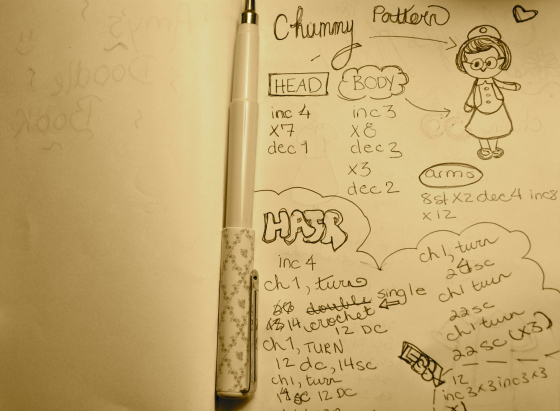 Chummy Pattern
HEAD
inc 4
x7
dec 1
BODY
inc 3
x8
dec 3
x3
dec 2
arms
8st x2 dec4 inc8
x12
HAIR
inc 4
ch 1, turn
double single
14 crochet
12 DC
ch 1, TURN
12 dc, 14sc
ch1, turn
14 sc 12 DC
ch1, turn
24sc
ch1 turn
22sc
ch1 turn
22sc (x3)
LEGS!
12
inc 3x3 inc3x3
x1
Amy's
Doodles
Book